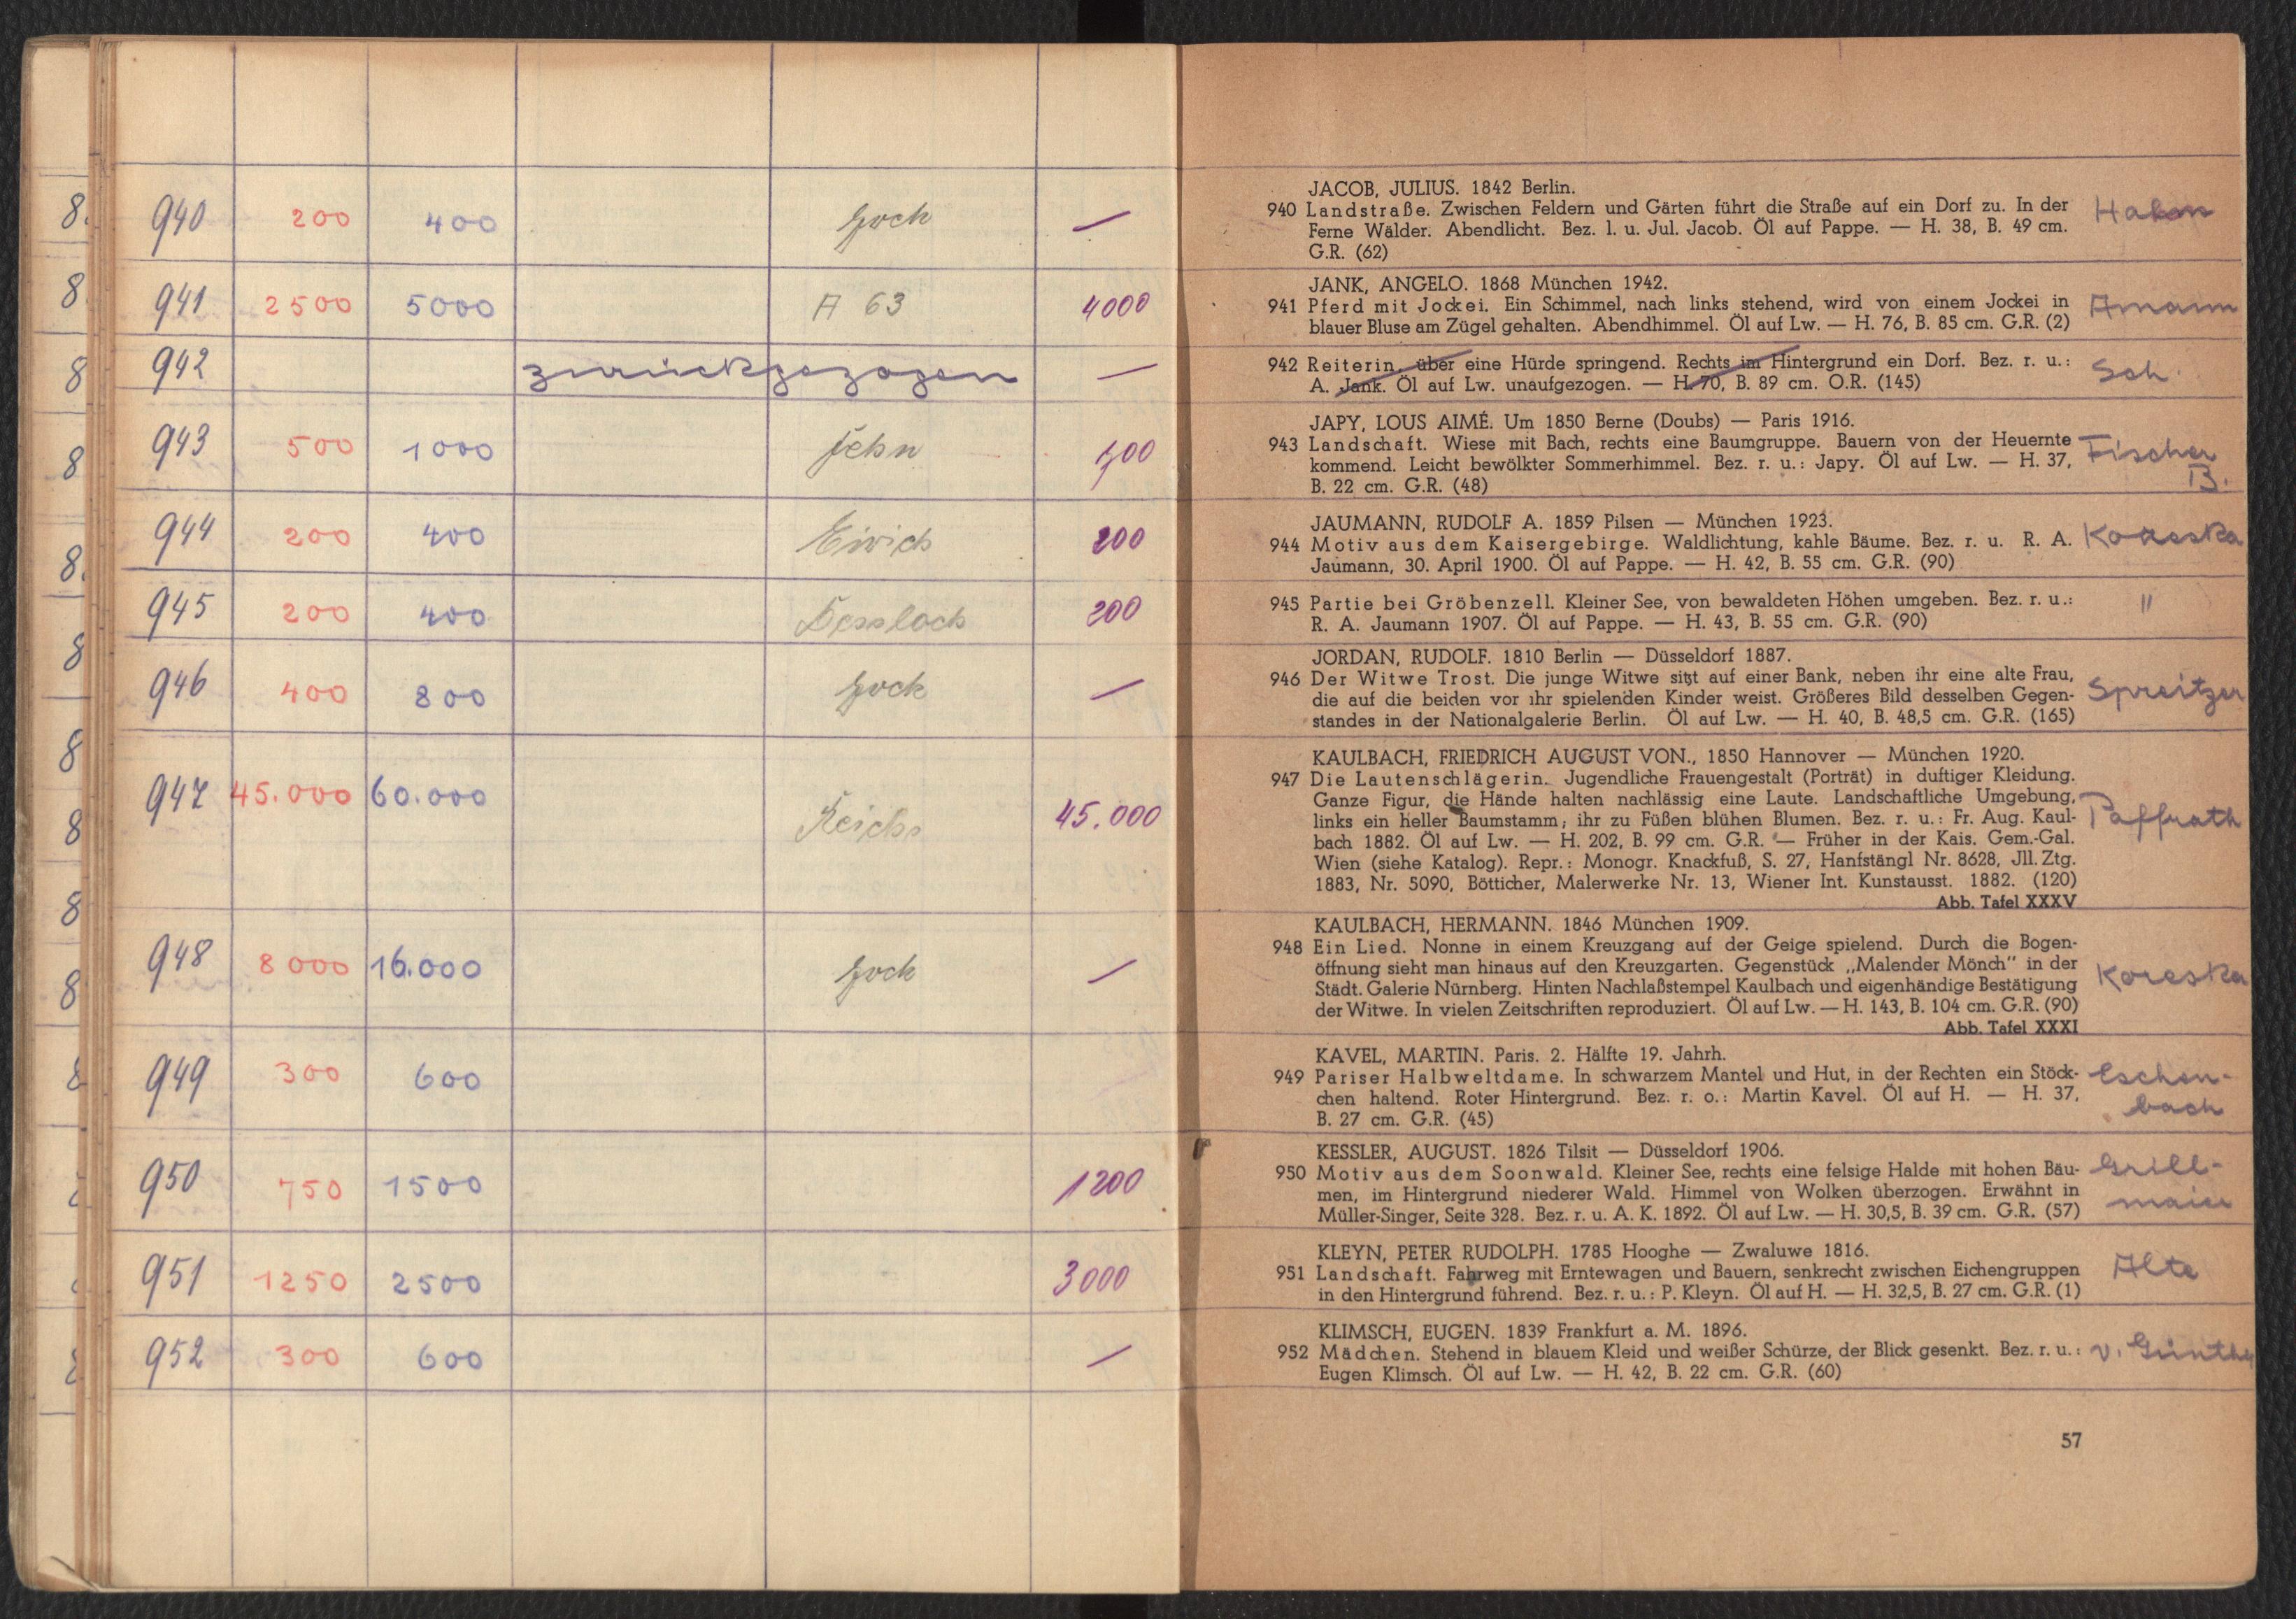 940 200 400 —
941 2500 5000 A 63 4000
942 zurückgezogen —
943 500 1000
944 200 400 200
945 200 400 200
946 400 800 —
947 45.000 60.000 45.000
948 8000 16.000 —
949 300 600
950 750 1500 1200
951 1250 2500 3000
952 300 600 —
JACOB, JULIUS. 1842 Berlin.
940 Landstraße. Zwischen Feldern und Gärten führt die Straße auf ein Dorf zu. In der
Ferne Wälder. Abendlicht. Bez. l. u. Jul. Jacob. Öl auf Pappe. — H. 38, B. 49 cm.
G.R. (62)
JANK, ANGELO. 1868 München 1942.
941 Pferd mit Jockei. Ein Schimmel, nach links stehend, wird von einem Jockei in Amann
blauer Bluse am Zügel gehalten. Abendhimmel. Öl auf Lw. — H. 76, B. 85 cm. G.R. (2)
942 Reiterin, über eine Hürde springend. Rechts im Hintergrund ein Dorf. Bez. r. u.: Sch.
A. Jank. Öl auf Lw. unaufgezogen. — H. 70, B. 89 cm. O.R. (145)
JAPY, LOUS AIMÉ. Um 1850 Berne (Doubs) — Paris 1916.
943 Landschaft. Wiese mit Bach, rechts eine Baumgruppe. Bauern von der Heuernte Fischer
kommend. Leicht bewölkter Sommerhimmel. Bez. r. u.: Japy. Öl auf Lw. — H. 37, B.
B. 22 cm. G.R. (48)
JAUMANN, RUDOLF A. 1859 Pilsen — München 1923.
944 Motiv aus dem Kaisergebirge. Waldlichtung, kahle Bäume. Bez. r. u. R. A. Koreska
Jaumann, 30. April 1900. Öl auf Pappe. — H. 42, B. 55 cm. G.R. (90)
945 Partie bei Gröbenzell. Kleiner See, von bewaldeten Höhen umgeben. Bez. r. u.: "
R. A. Jaumann 1907. Öl auf Pappe. — H. 43, B. 55 cm. G.R. (90)
JORDAN, RUDOLF. 1810 Berlin — Düsseldorf 1887.
946 Der Witwe Trost. Die junge Witwe sitzt auf einer Bank, neben ihr eine alte Frau, Spreitzer
die auf die beiden vor ihr spielenden Kinder weist. Größeres Bild desselben Gegen-
standes in der Nationalgalerie Berlin. Öl auf Lw. — H. 40, B. 48,5 cm. G.R. (165)
KAULBACH, FRIEDRICH AUGUST VON., 1850 Hannover — München 1920.
947 Die Lautenschlägerin. Jugendliche Frauengestalt (Porträt) in duftiger Kleidung.
Ganze Figur, die Hände halten nachlässig eine Laute. Landschaftliche Umgebung,
links ein heller Baumstamm; ihr zu Füßen blühen Blumen. Bez. r. u.: Fr. Aug. Kaul- Paffrath
bach 1882. Öl auf Lw. — H. 202, B. 99 cm. G.R. — Früher in der Kais. Gem.-Gal.
Wien (siehe Katalog). Repr.: Monogr. Knackfuß, S. 27, Hanfstängl Nr. 8628, Jll. Ztg.
1883, Nr. 5090, Bötticher, Malerwerke Nr. 13, Wiener Int. Kunstausst. 1882. (120)
Abb. Tafel XXXV
KAULBACH, HERMANN. 1846 München 1909.
948 Ein Lied. Nonne in einem Kreuzgang auf der Geige spielend. Durch die Bogen-
öffnung sieht man hinaus auf den Kreuzgarten. Gegenstück „Malender Mönch" in der Koreska
Städt. Galerie Nürnberg. Hinten Nachlaßstempel Kaulbach und eigenhändige Bestätigung
der Witwe. In vielen Zeitschriften reproduziert. Öl auf Lw. — H. 143, B. 104 cm. G.R. (90)
Abb. Tafel XXXI
KAVEL, MARTIN. Paris. 2. Hälfte 19. Jahrh.
949 Pariser Halbweltdame. In schwarzem Mantel und Hut, in der Rechten ein Stöck- Eschen-
chen haltend. Roter Hintergrund. Bez. r. o.: Martin Kavel. Öl auf H. — H. 37, bach
B. 27 cm. G.R. (45)
KESSLER, AUGUST. 1826 Tilsit — Düsseldorf 1906.
950 Motiv aus dem Soonwald. Kleiner See, rechts eine felsige Halde mit hohen Bäu- Grill-
men, im Hintergrund niederer Wald. Himmel von Wolken überzogen. Erwähnt in maier
Müller-Singer, Seite 328. Bez. r. u. A. K. 1892. Öl auf Lw. — H. 30,5, B. 39 cm. G.R. (57)
KLEYN, PETER RUDOLPH. 1785 Hooghe — Zwaluwe 1816.
951 Landschaft. Fahrweg mit Erntewagen und Bauern, senkrecht zwischen Eichengruppen Alte
in den Hintergrund führend. Bez. r. u.: P. Kleyn. Öl auf H. — H. 32,5, B. 27 cm. G.R. (1)
KLIMSCH, EUGEN. 1839 Frankfurt a. M. 1896.
952 Mädchen. Stehend in blauem Kleid und weißer Schürze, der Blick gesenkt. Bez. r. u.: v. Günther
Eugen Klimsch. Öl auf Lw. — H. 42, B. 22 cm. G.R. (60)
57